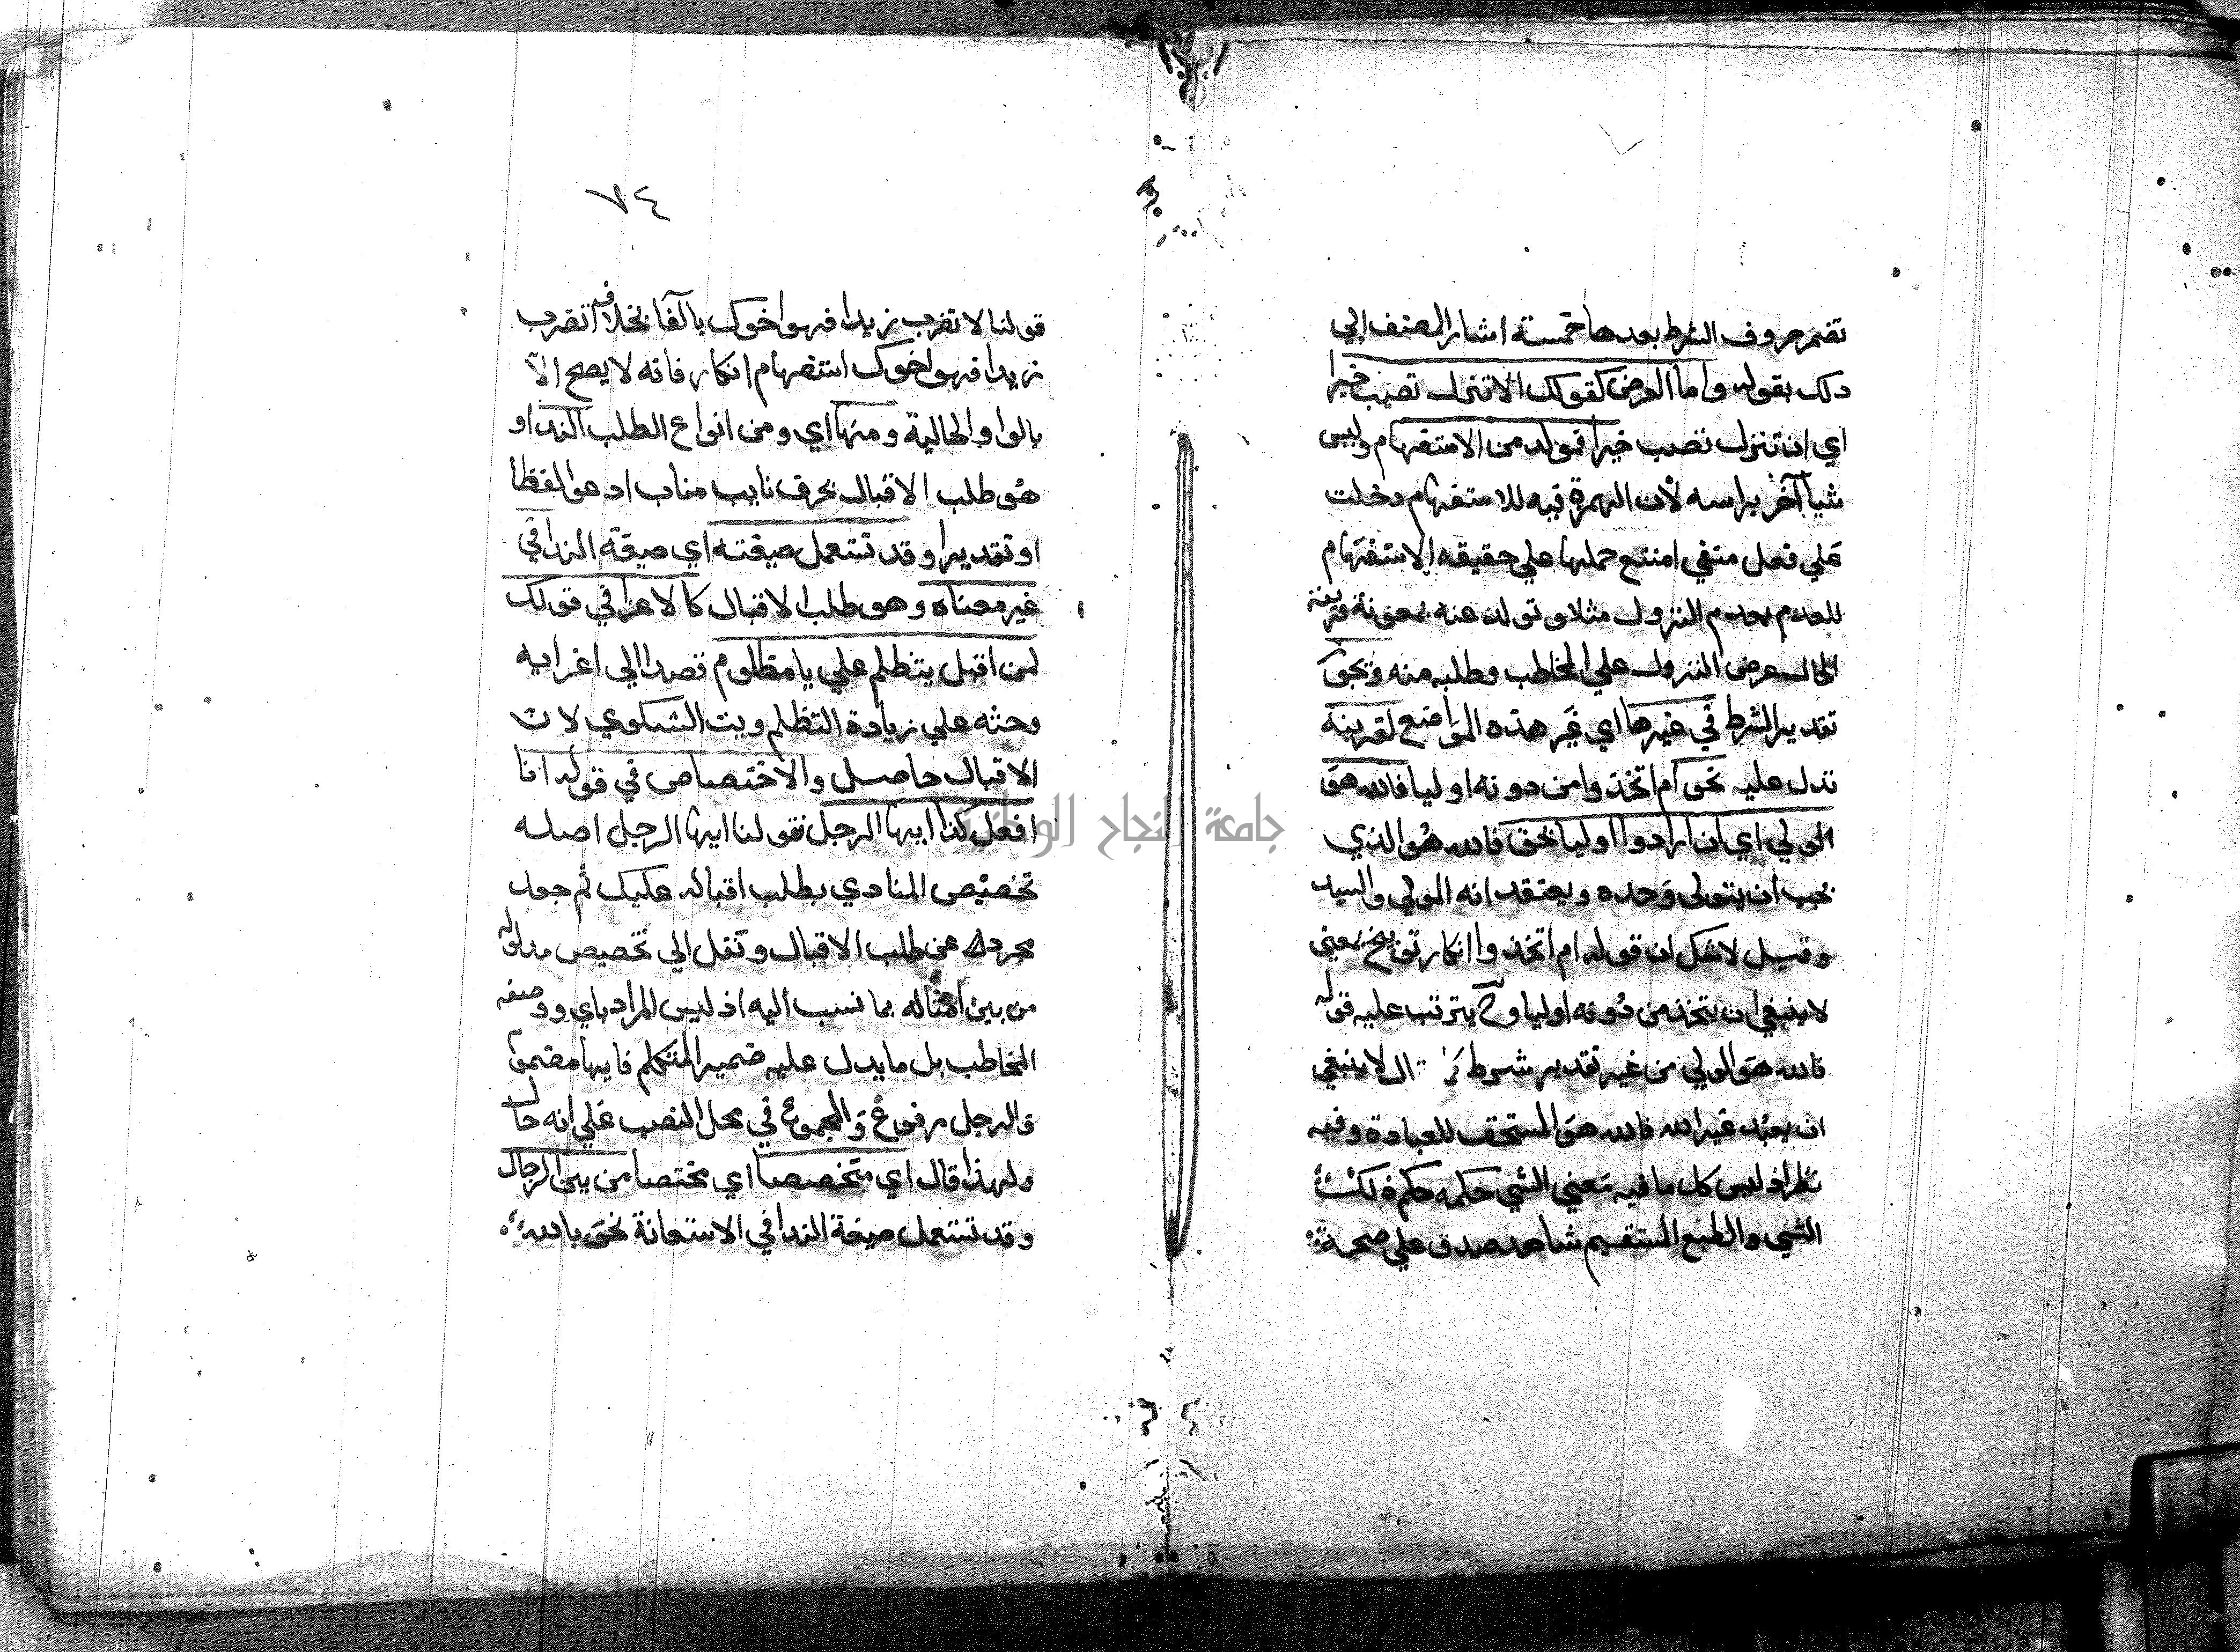 تضمر حروف الشرط بعدها خمسة اشار المصنف الي
ذلك بقوله واما العرض كقولك الا تنزل تصيب خيرا
اي ان تنزل تصب خيرا فمولد من الاستفهام وليس
شيا آخر براسه لان الهمزة فيه للاستفهام دخلت
علي فعل منفي امتنع حملها علي حقيقه الاستفهام
للعلم بعدم النزول مثلا وتولد عنه بمعونة قرينة
الحال عرض النزول علي المخاطب وطلبه منه ويجوز
تقدير الشرط في غيرها اي غير هذه المواضع لقرينة
تدل عليه نحو ام اتخذوا من دونه اوليا فالله هو
الولي اي ان ارادوا اوليا بحق فالله هو الذي
يجب ان يتولي وحده ويعتقد انه المولي والسيد
وقيل لاشك ان قوله ام اتخذوا انكار توبيخ بمعني
لا ينبغي ان يتخذ من دونه اوليا وح يترتب عليه قوله
فالله هو الولي من غير تقدير شرط كما يقال لا ينبغي
ان يعبد غير الله فالله هو المستحق للعبادة وفيه
نظر اذ ليس كل ما فيه معني الشي حكمه حكم ذلك
الشي والطبع المستقيم شاهد صدق علي صحة
٧٤
قولنا لا تضرب زيدا فهو اخوك بالفا بخلاف اتضرب
زيدا فهو اخوك استفهام انكار فانه لا يصح الا
بالواو الحالية ومنها اي ومن انواع الطلب الندا و
هو طلب الاقبال بحرف نايب مناب ادعو لفظا
او تقديرا وقد تستعمل صيغته اي صيغة الندا في
غير معناه وهو طلب الاقبال كالاغرا في قولك
لمن اقبل يتظلم علي يا مظلوم قصدا الي اغرايه
وحثه علي زيادة التظلم وبث الشكوي لان
الاقبال حاصل والاختصاص في قوله انا
افعل كذا ايها الرجل فقولنا ايها الرجل اصله
تخصيص المنادي بطلب اقباله عليك ثم جعل
مجردا عن طلب الاقبال ونقل الي تخصيص مدلوله
من بين امثاله بما نسب اليه اذ ليس المراد باي ووصفه
المخاطب بل ما يدل عليه ضمير المتكلم فايها مضموم
والرجل مرفوع والمجموع في محل النصب علي انه حال
ولهذا قال اي متخصصا اي مختصا من بين الرجال
وقد تستعمل صيغة الندا في الاستعانة نحو بالله
جامعة النجاح الوطنية